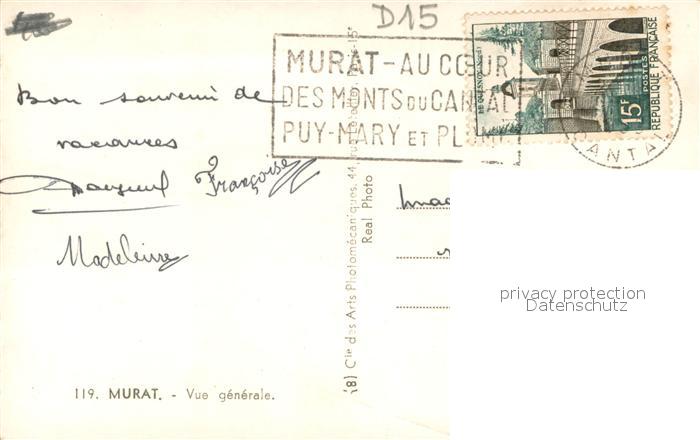 D15
MURAT - AU CŒUR
DES MONTS DU CANTAL
PUY-MARY ET PL
LE QUESNOY
15F
POSTES
REPUBLIQUE FRANÇAISE
ANTAL
Bon souvenir de
vacances
Françoise
Madeleine
(8) Cie des Arts Photomécaniques, 44, rue
Paris-15e
Real Photo
privacy protection
Datenschutz
119. MURAT. - Vue générale.